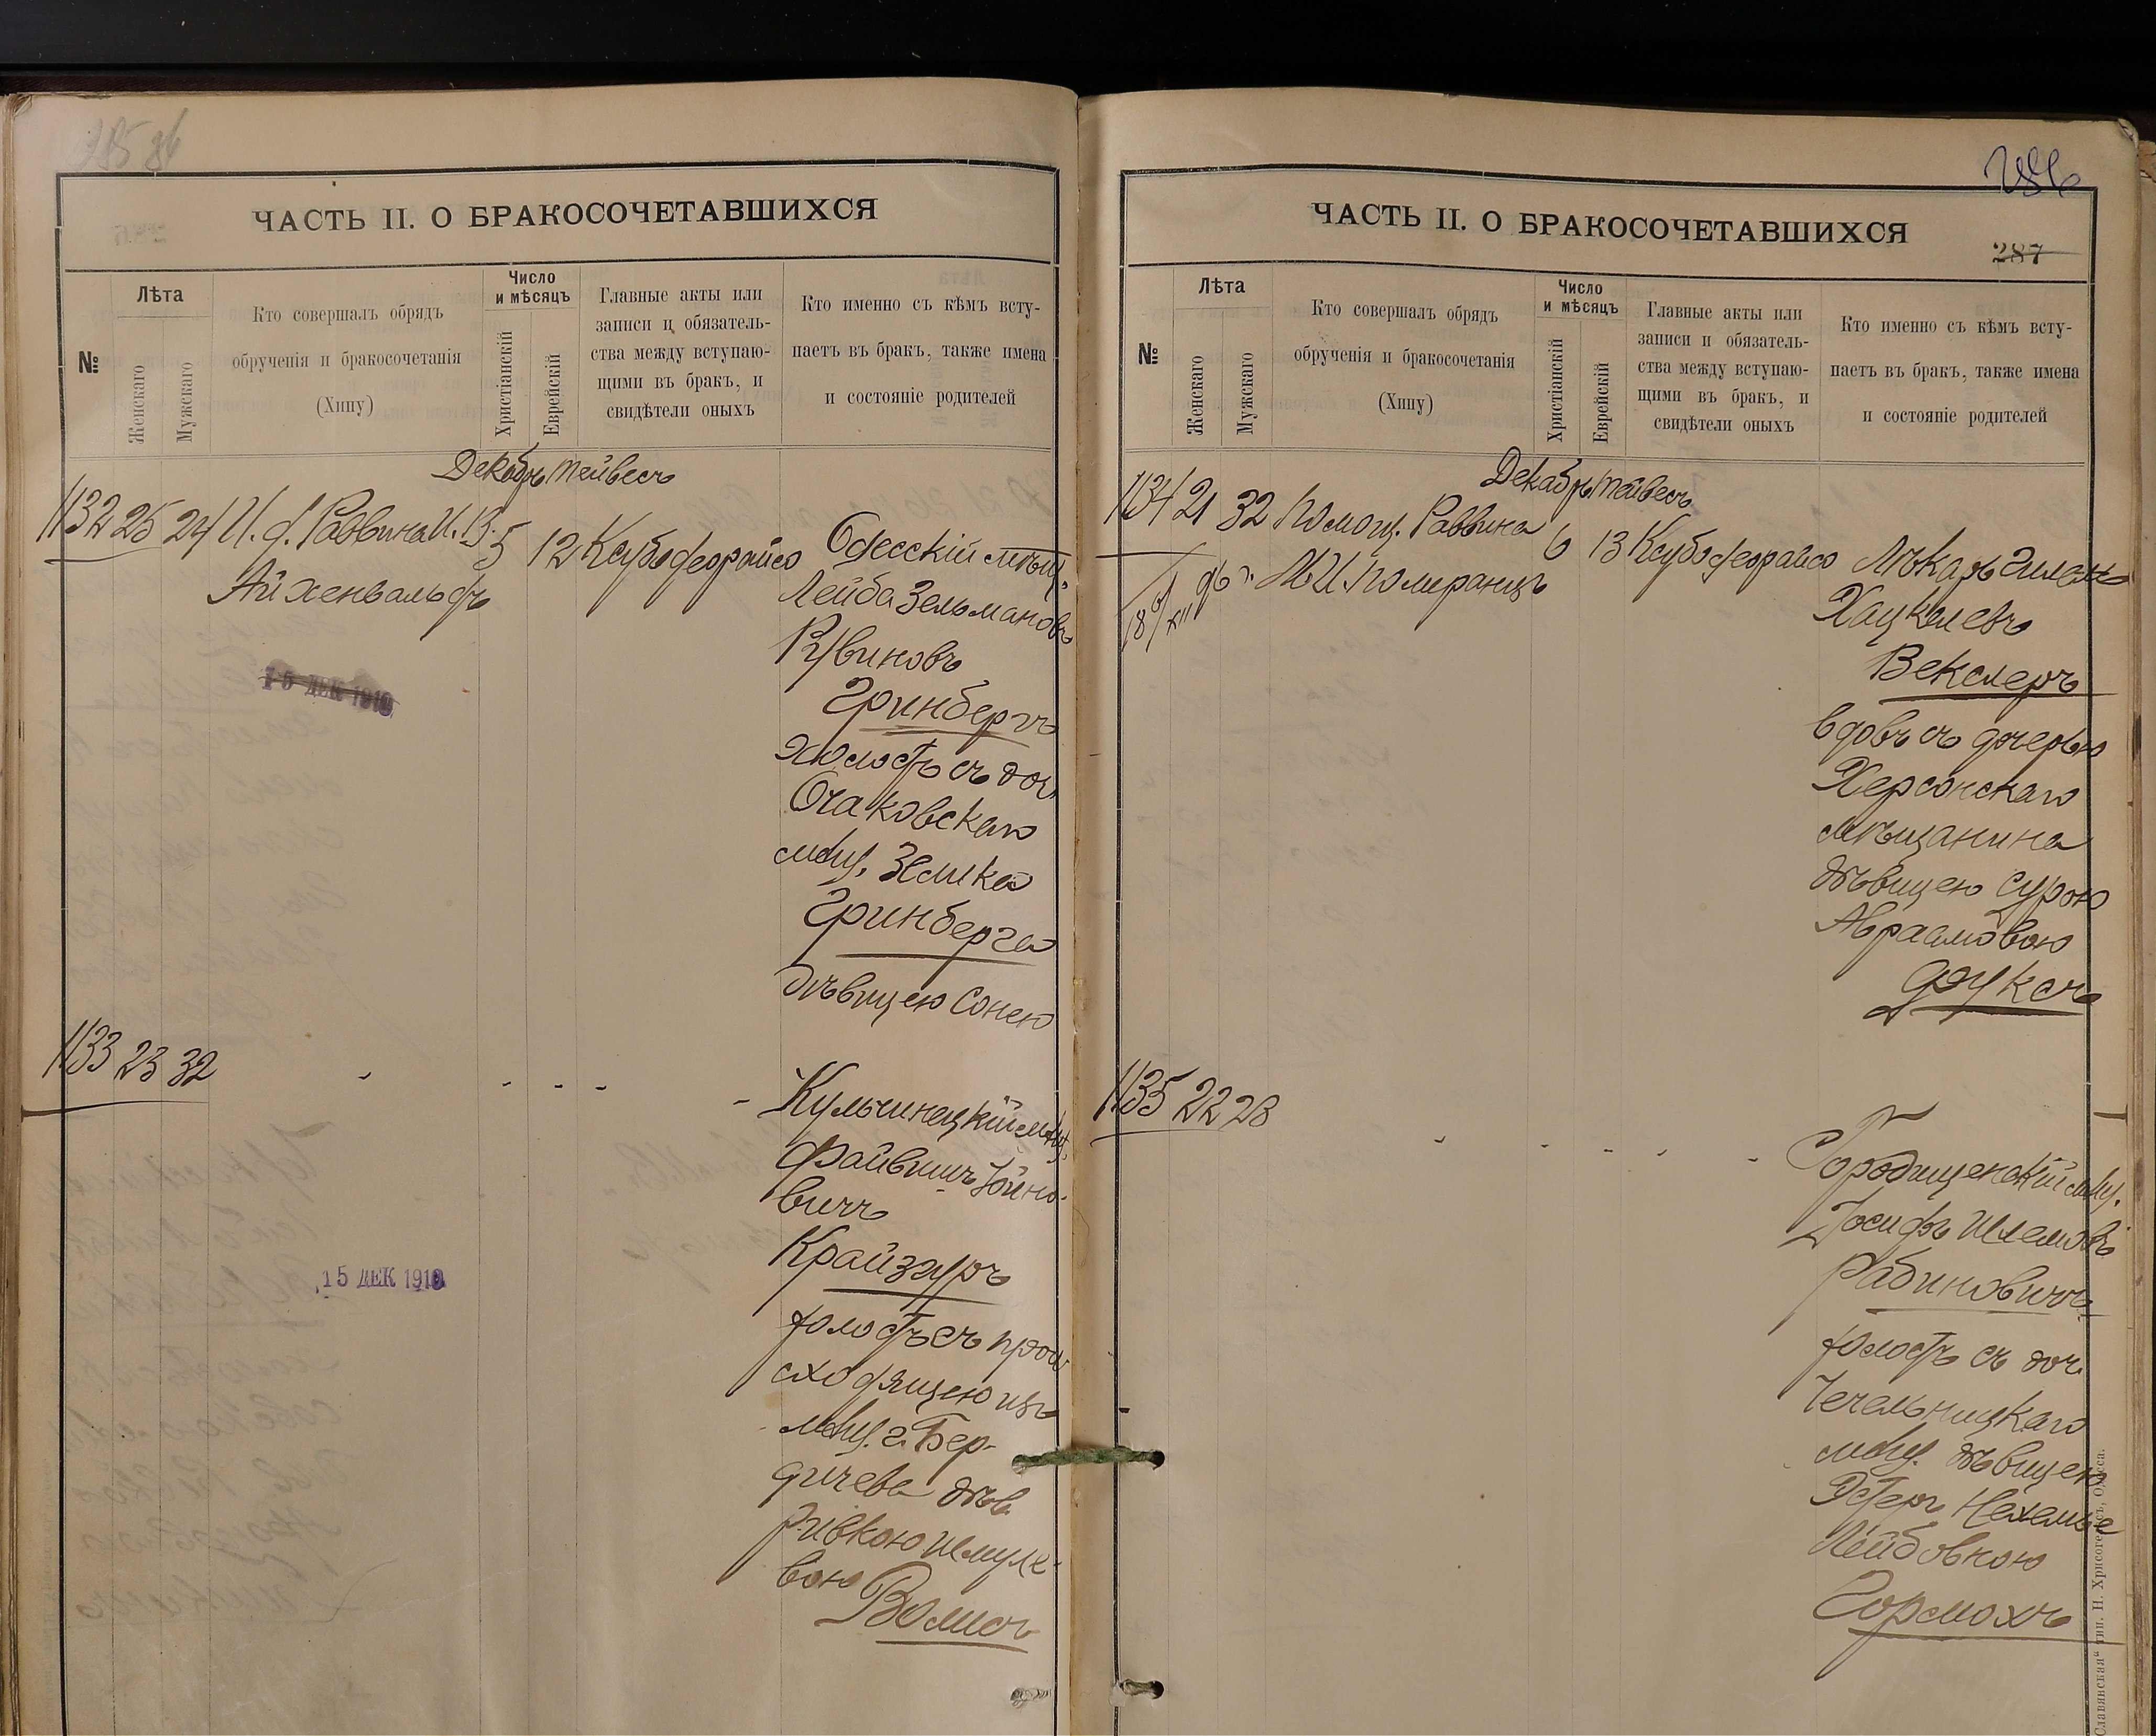 285 86
ЧАСТЬ II. О БРАКОСОЧЕТАВШИХСЯ
№
Лѣта
Женскаго
Мужскаго
Кто совершалъ обрядъ
обрученія и бракосочетанія
(Хипу)
Число
и мѣсяцъ
Христіанскій
Еврейскій
Главные акты или
записи и обязатель-
ства между вступаю-
щими въ бракъ, и
свидѣтели оныхъ
Кто именно съ кѣмъ всту-
паетъ въ бракъ, также имена
и состояніе родителей
Декабрь Тейвесъ
1132 25 24 И. д. Раввина И. В. 5 12 Ксубо деорайсо Одесскій мѣщ.
Айхенвальдъ
Лейба Зельмановъ
Рувиновъ
Гринбергъ
холостъ съ доч.
Очаковскаго
мѣщ. Зелика
Гринберга
дѣвицею Сонею
15 ДЕК 1910
1133 23 32 - - - - - Кульчинецкій мѣщ.
Файвишъ Іойно-
вичъ
Крайзуръ
холостъ съ прои
сходящею изъ
мѣщ. г. Бер-
дичева дѣв.
Ривкою Шмуле-
вою Волисъ
15 ДЕК 1910
286
ЧАСТЬ II. О БРАКОСОЧЕТАВШИХСЯ
287
№
Лѣта
Женскаго
Мужскаго
Кто совершалъ обрядъ
обрученія и бракосочетанія
(Хипу)
Число
и мѣсяцъ
Христіанскій
Еврейскій
Главные акты или
записи и обязатель-
ства между вступаю-
щими въ бракъ, и
свидѣтели оныхъ
Кто именно съ кѣмъ всту-
паетъ въ бракъ, также имена
и состояніе родителей
Декабрь Тейвесъ
1134 21 32 Помощ. Раввина 6 13 Ксубо деорайсо Лѣкарь
М И Померанцъ
Хацкелевъ
Векслеръ
вдовъ съ дочерью
Херсонскаго
мѣщанина
дѣвицею Сурою
Авраамовою
Фуксъ
1135 22 28 - - - - - Городищенскій мѣщ.
Іосифъ Шлемовъ
Рабиновичъ
холостъ съ доч.
Чечельницкаго
мѣщ. дѣвицею
Эстеръ Нехамье
Лейбовною
Гормохъ
Славянская" тип. Н. Хрисогелосъ, Одесса.